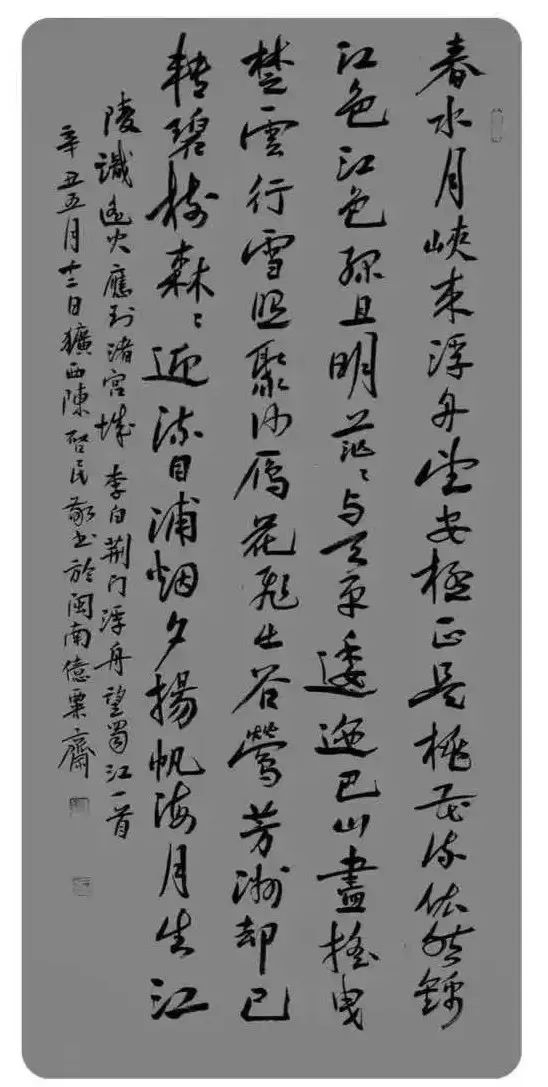 春水月峽来浮舟望安極正是桃花流依然錦
江色江色綠且明茫〻与天平逶迤巴山盡摇曳
楚雲行雪照聚沙雁花飛出谷鶯芳洲却已
轉碧樹森〻迎流目浦烟夕揚帆海月生江
陵識遥火應到渚宫城 李白荆门浮舟望蜀江一首
辛丑五月十二日獷西陳啓民敬書於閩南億粟齋